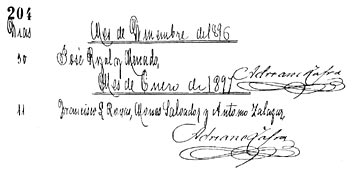 204
Dias
Mes de Diciembre de 1896
30 José Rizal y Mercado,
Mes de Enero de 1897
Adriano
11 Francisco L Roxas, Salvador y Antonio Salazar
Adriano